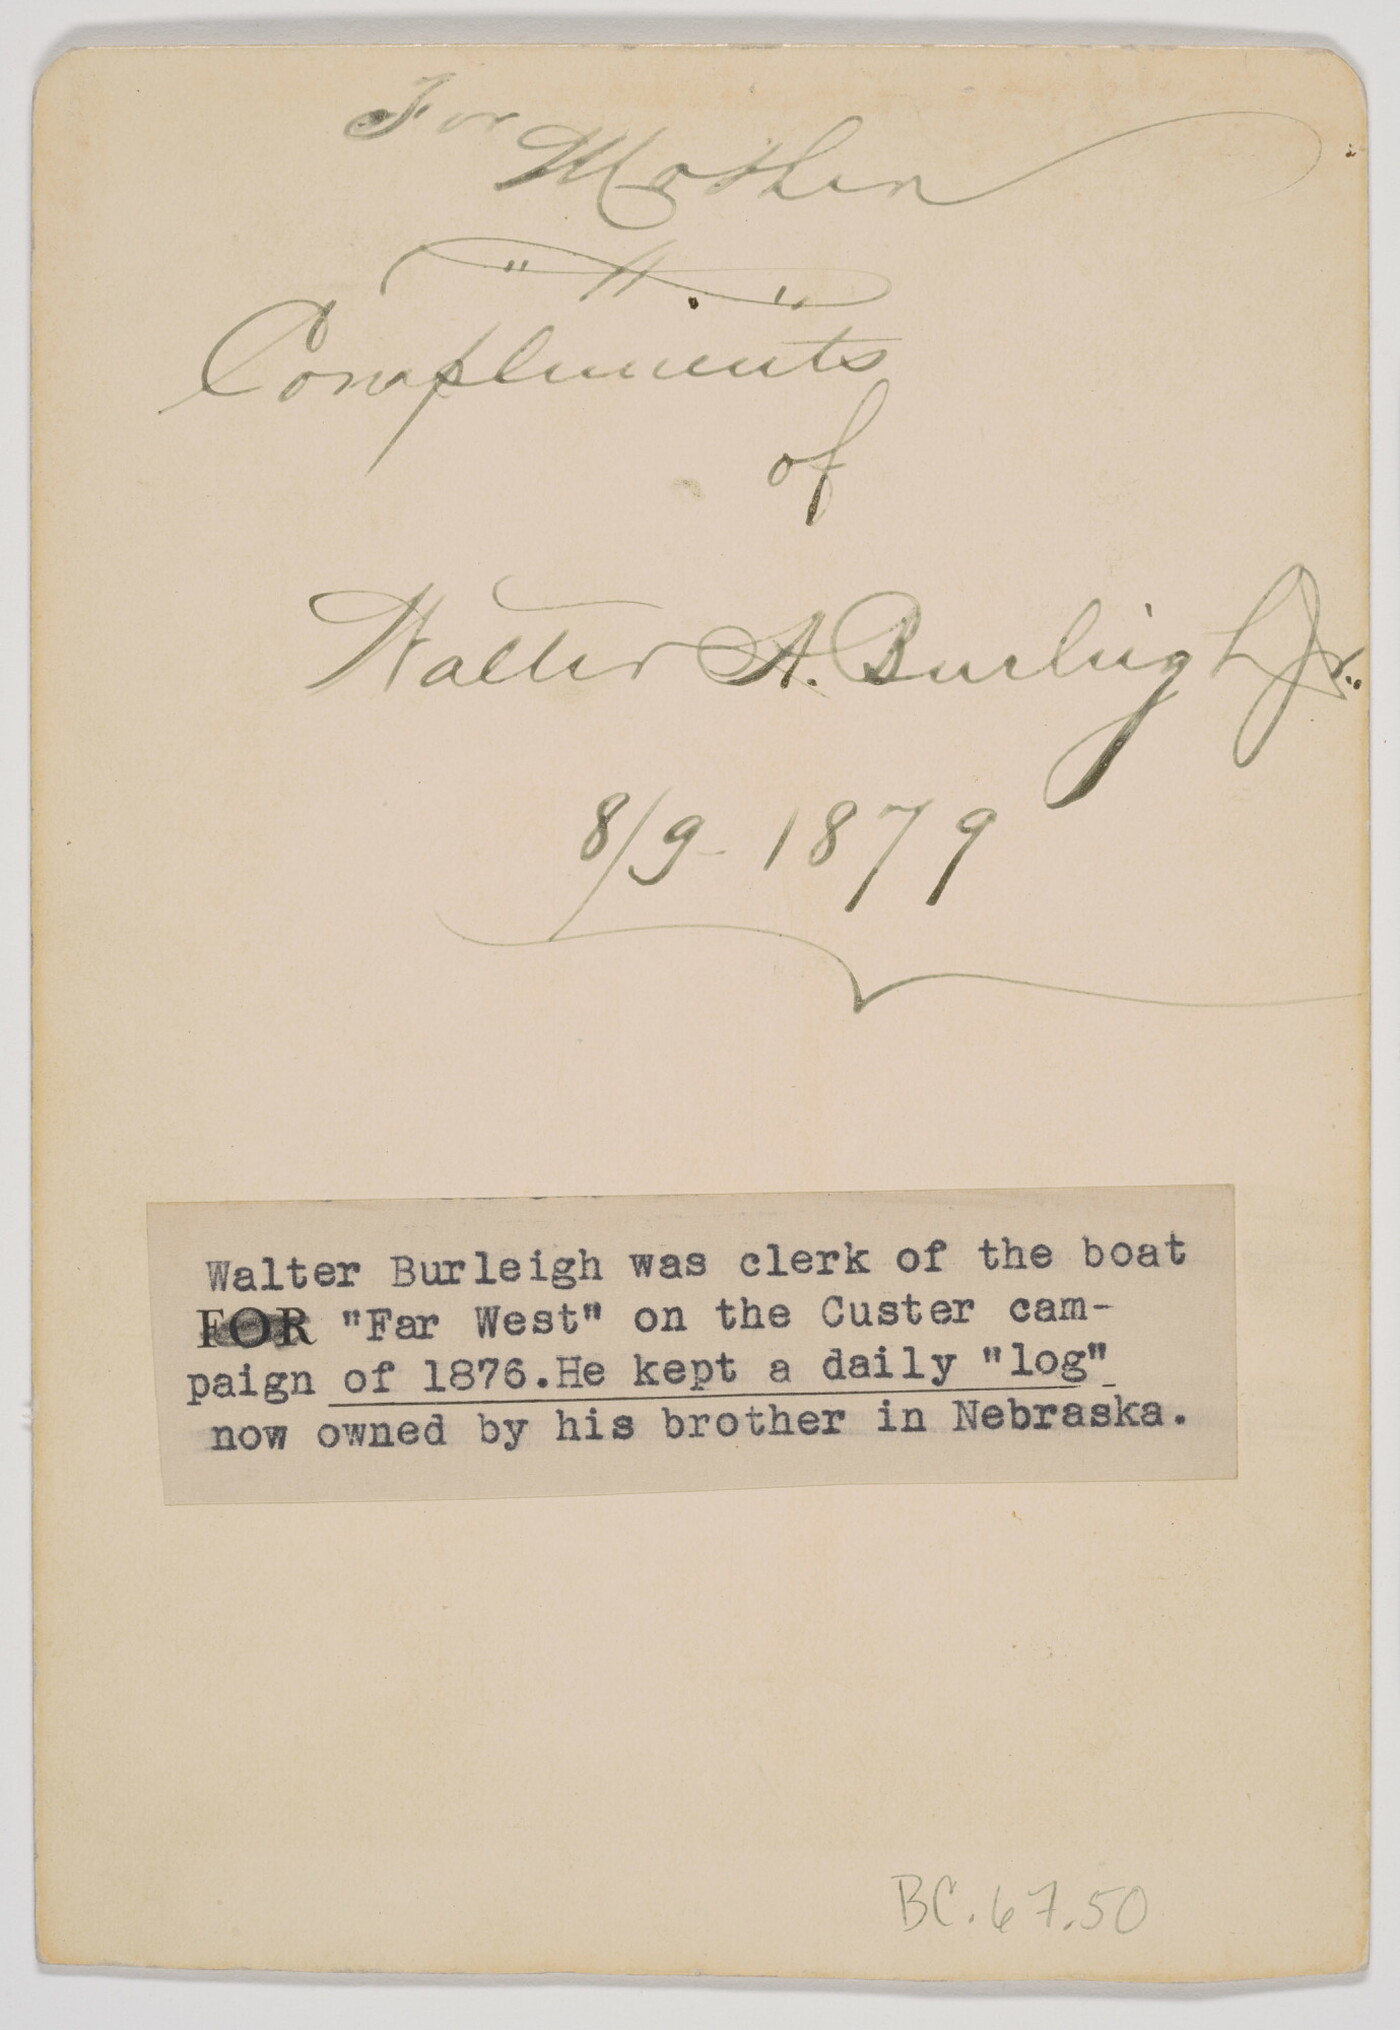 For
Mother
" "
Compliments
of
Walter A. Burleigh Jr.
8/9-1879
Walter Burleigh was clerk of the boat
FOR "Far West" on the Custer cam-
paign of 1876.He kept a daily "log"
now owned by his brother in Nebraska.
BC.67.50